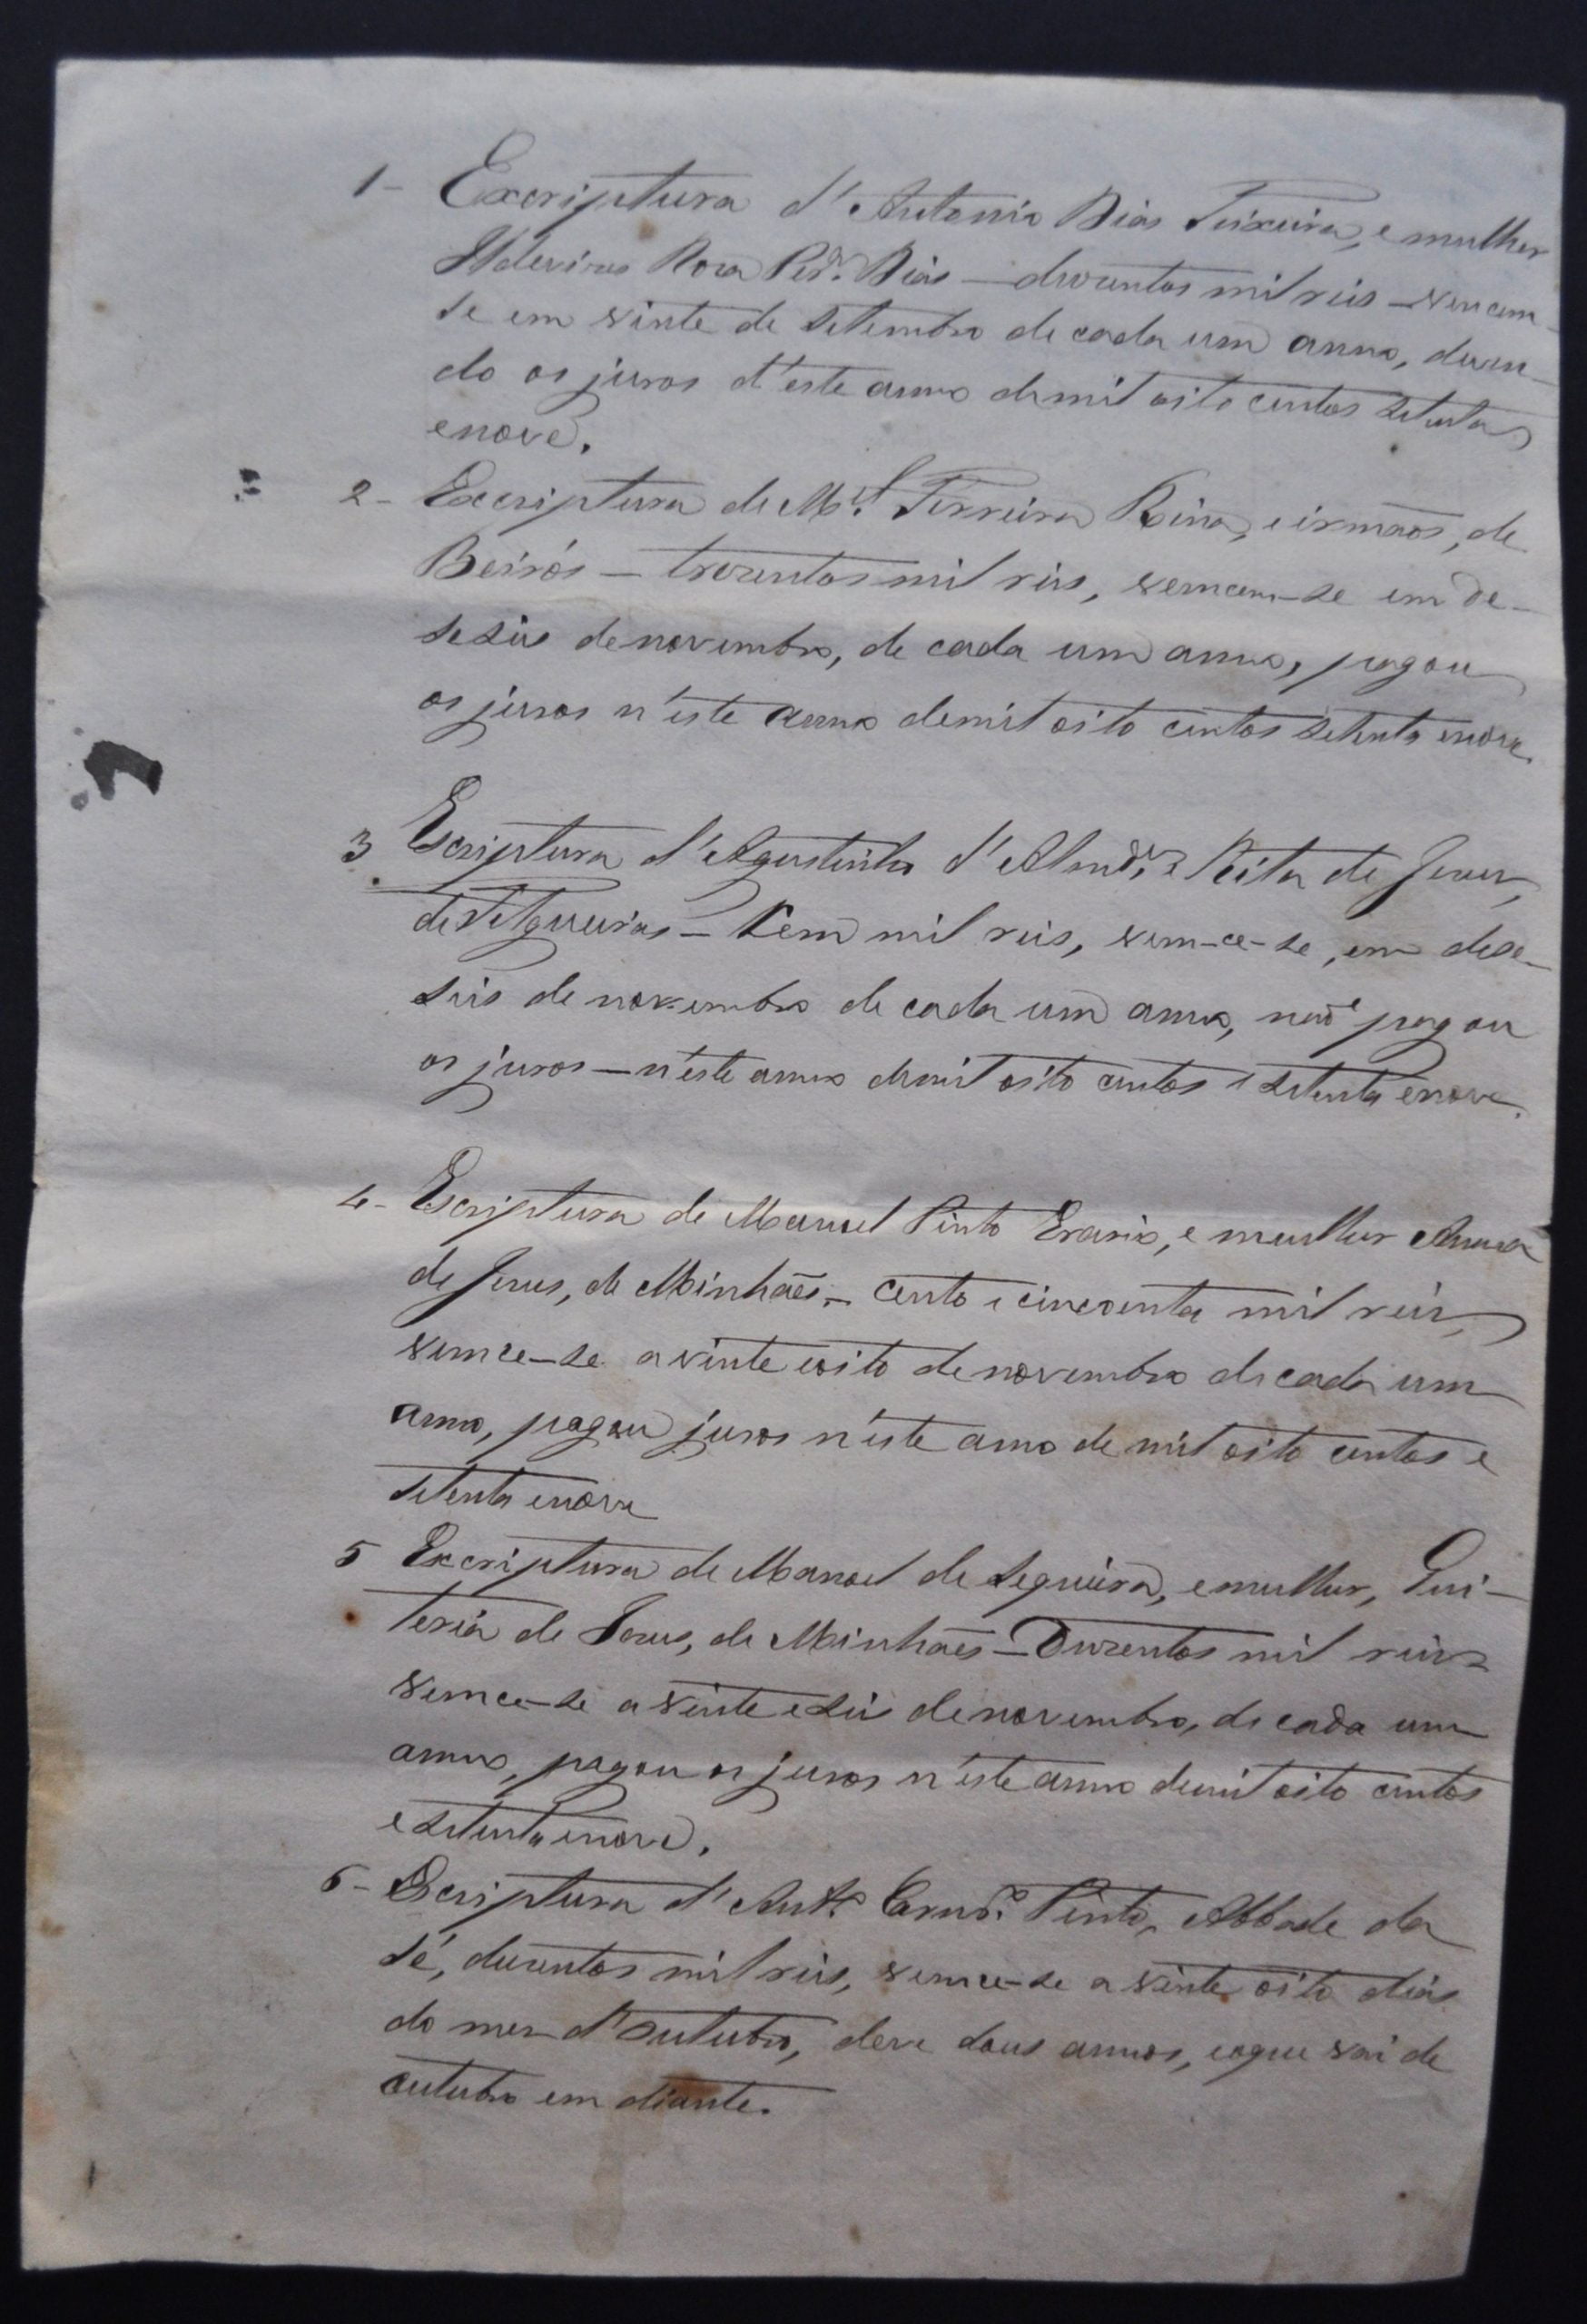 1- Excriptura d'Antonio Dias Teixeira, e mulher
Rosa Per.ª Dias — duzentos mil reis — vencem-
se em vinte de Setembro de cada um anno, deven-
do os juros d'este anno de mil oito centos setenta
e nove.
2- Excriptura de M.el Ferreira Rina, e irmãos, de
Beirós — trezentos mil reis, vemcem-se em de-
seseis de novembro, de cada um anno, pagou
os juros n'este anno de mil oito centos setenta e nove.
3 Escriptura d'Agustinho d'Almd.ª e Rita de Jesus,
de Felgueiras — Cem mil reis, vem-ce-se, em dese-
seis de novembro de cada um anno, não pagou
os juros — n'este anno de mil oito centos e setenta e nove.
4- Escriptura de Manoel Pinto Erario, e mulher Anna
de Jesus, de Minhães — cento e cincoenta mil reis,
vemce-se a vinte e oito de novembro de cada um
anno, pagou juros n'este anno de mil oito centos e
setenta e nove
5 Excriptura de Manoel de Sequeira, e mulher, Qui-
teria de Jesus, de Minhães — Duzentos mil reis
vemce-se a vinte e seis de novembro, de cada um
anno, pagou os juros n'este anno de mil oito centos
e setenta e nove.
6- Escriptura d'Ant.º Pinto, Abbade da
Sé, duzentos mil reis, vemce-se a vinte oito dias
do mes d'Outubro, deve dous annos, e o que vai de
outubro em diante.